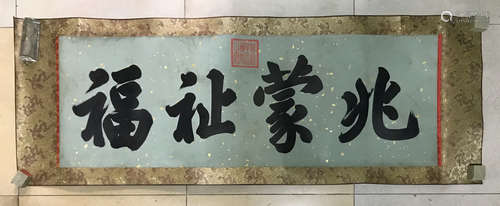 兆蒙祉福